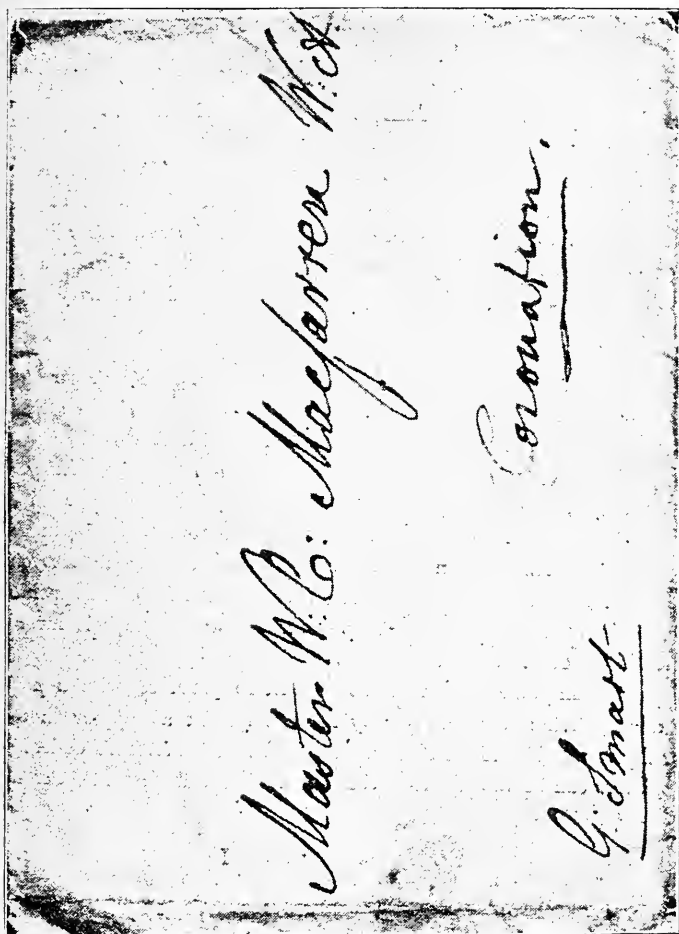 Master W. C: Macfarren W. A.
Coronation.
G. Smart